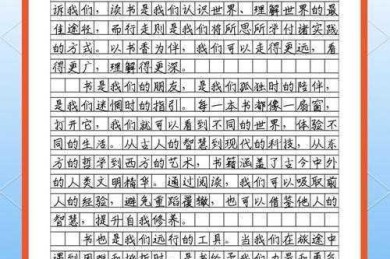 诉我们，读书是我们认识世界、理解世界的最
佳途径，而行走则是我们将所思所学付诸实践
的方式。以书香为伴，我们可以走得更远，看
得更广，理解得更深。
书是我们的朋友，是我们孤独时的陪伴，
是我们迷惘时的指引。每一本书都像一扇窗，
打开它，我们就可以看到不同的世界，体验不
同的生活。从古人的智慧到现代的科技，从东
方的哲学到西方的艺术，书籍涵盖了古今中外
的人类文明精华。通过阅读，我们可以吸取前
人的经验，避免重蹈覆辙，也可以借鉴他人的
智慧，提升自我修养。
书也是我们远行的工具。当我们在旅途中
遇到困难和挫折时，是书给予我们力量和勇气